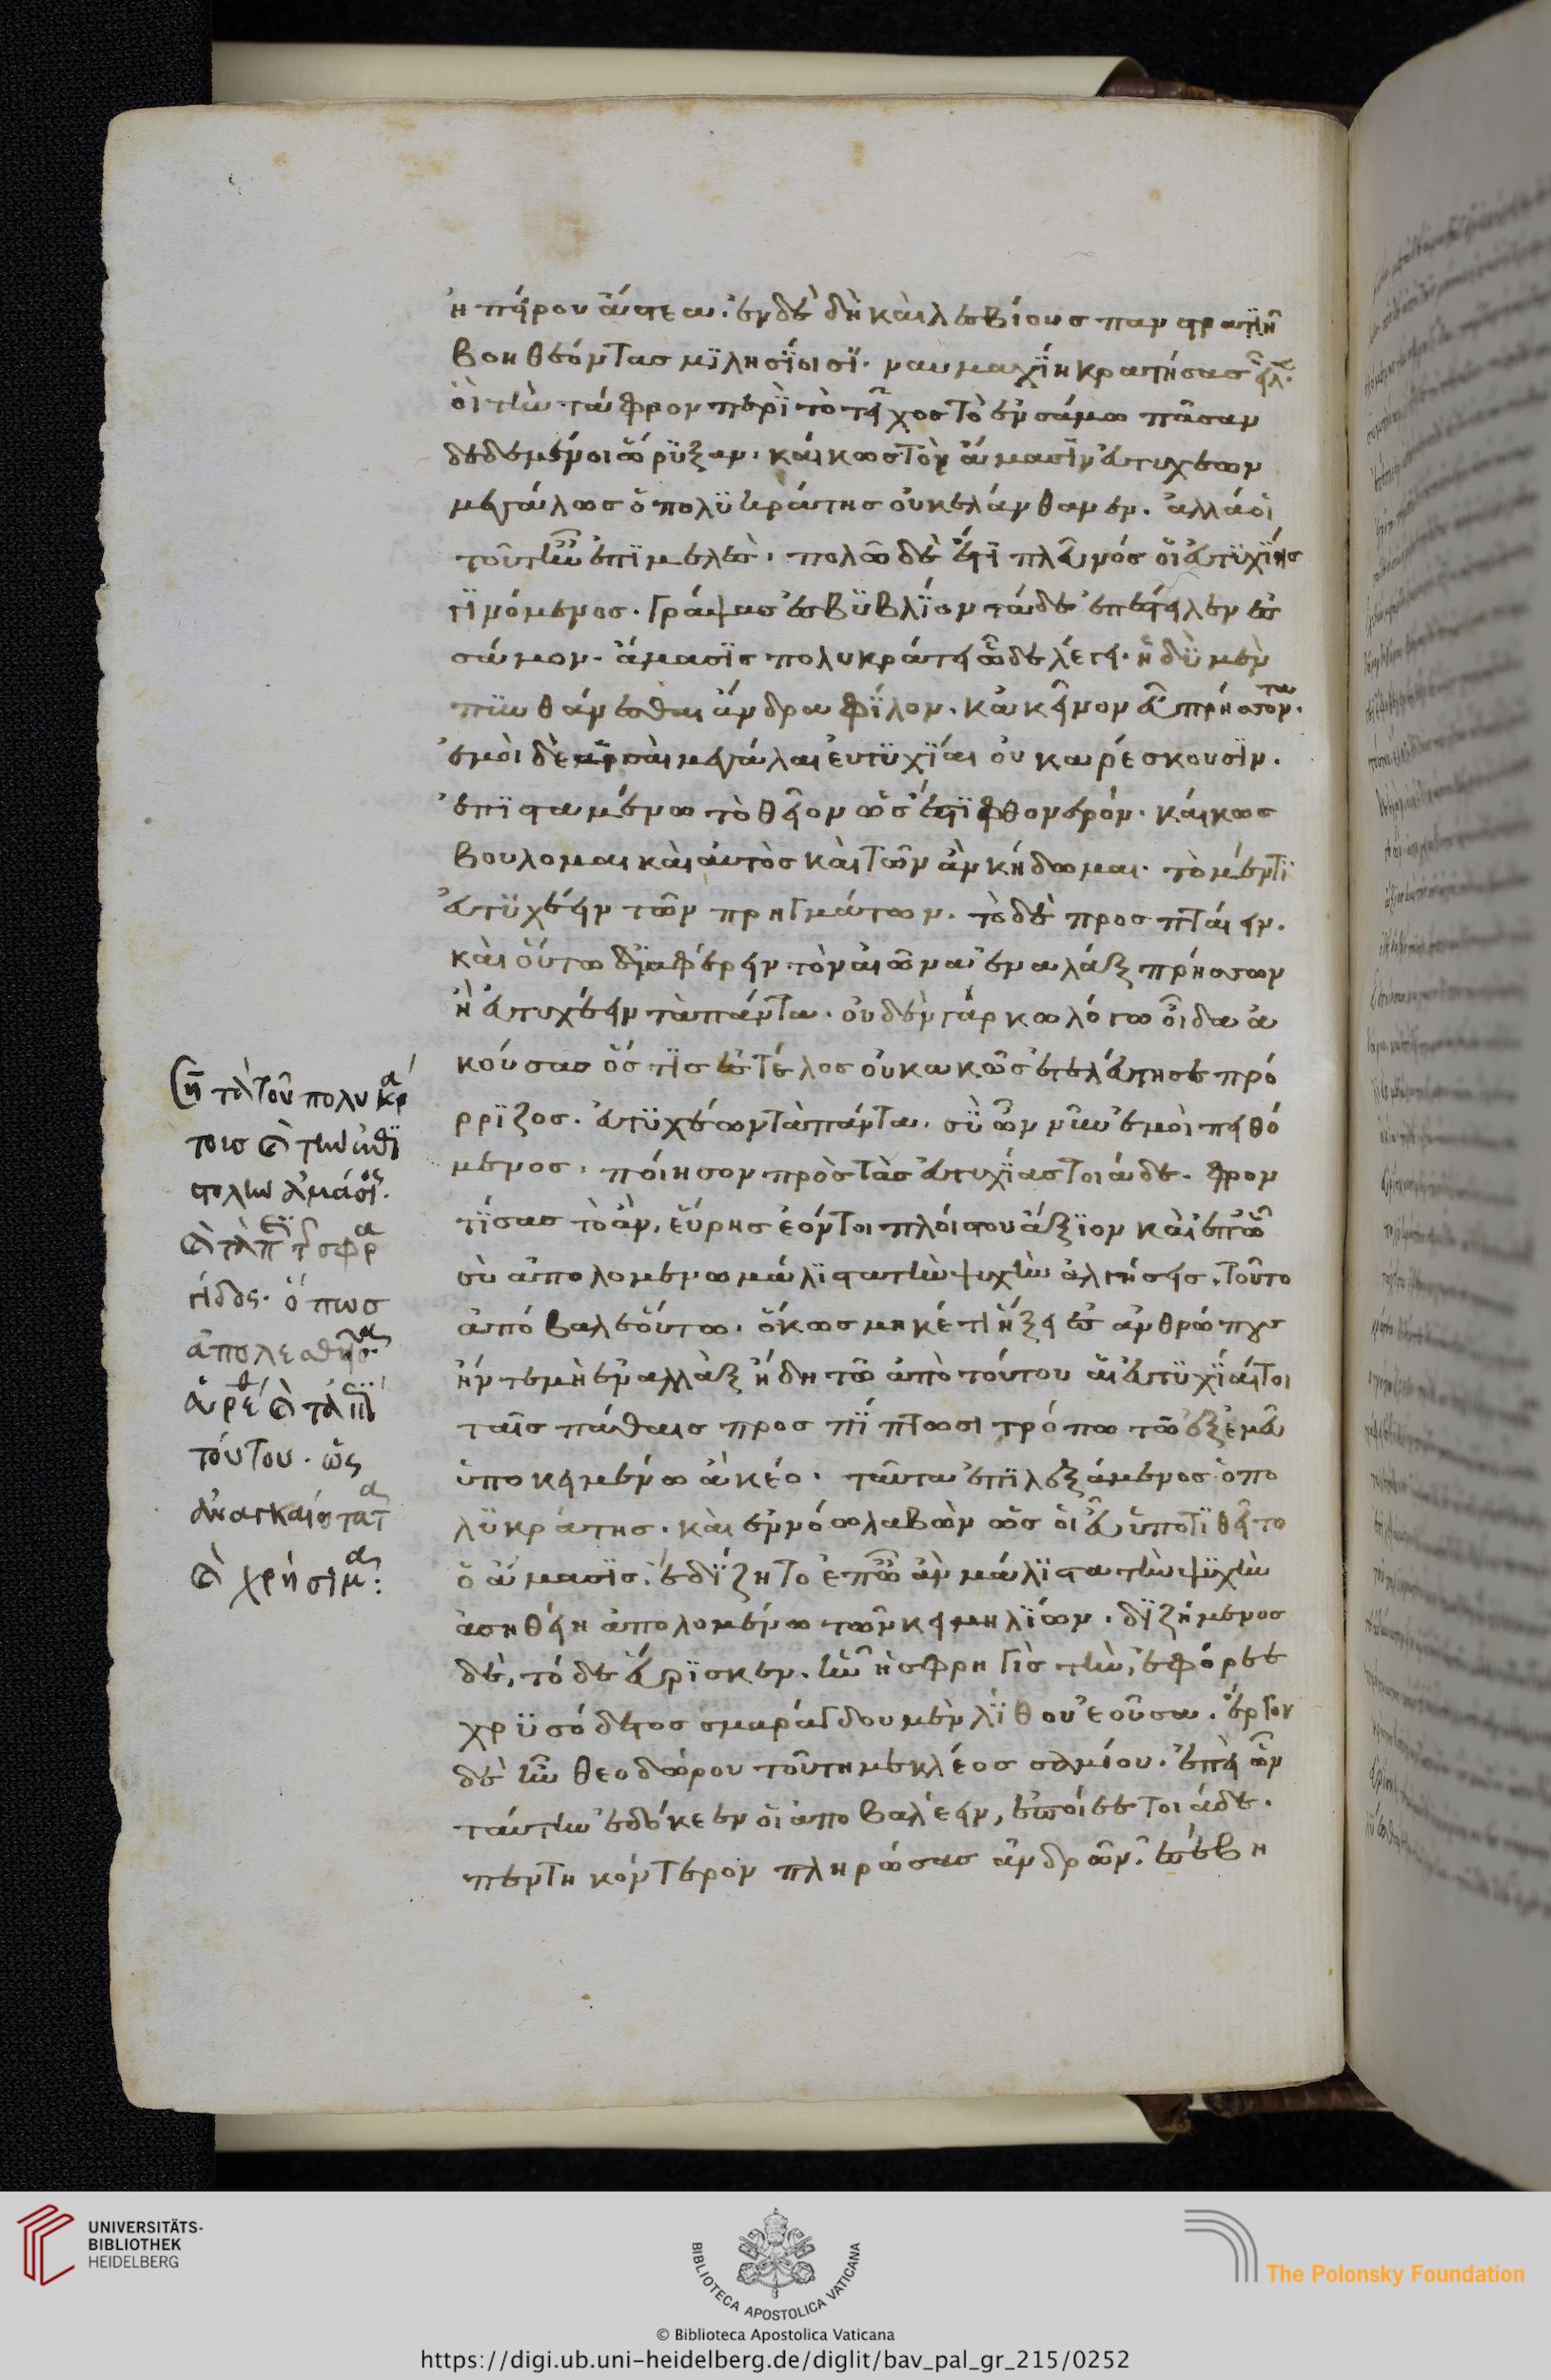 ἠπείρου ἄστεα. ἐν δὲ δὴ καὶ λεσβίους πανστρατιῆ
βοηθέοντας μιλησίοισι. ναυμαχίη κρατήσας εἷλ.
οἳ τὴν τάφρον περὶ τὸ τεῖχος τὸ ἐν σάμω πᾶσαν
δεδεμένοι ὤρυξαν. καί κως τὸν ἄμασιν εὐτυχέων
μεγάλως ὁ πολυκράτης οὐκ ἐλάνθανεν. ἀλλά οἱ
τοῦτ' ἦν ἐπιμελὲς. πολῶ δὲ ἔτι πλεῦνός οἱ εὐτυχίης
γινόμενος. γράψας ἐς βυβλίον τάδε ἐπέστειλεν ἐς
σάμον. ἄμασις πολυκράτει ὧδε λέγει. ἡδὺ μὲν
πυνθάνεσθαι ἄνδρα φίλον. κα κεῖνον εὖ πρήσσοντα.
ἐμοὶ δὲ αἱ σαὶ μεγάλαι εὐτυχίαι οὐκ ἀρέσκουσιν.
ἐπισταμένω τὸ θεῖον ὡς ἔστι φθονερόν. καί κως
βουλομαι καὶ αὐτὸς καὶ τῶν ἂν κήδωμαι. τὸ μέν τι
εὐτυχέειν τῶν πρηγμάτων. τὸ δὲ προσπταίειν.
καὶ οὕτω διαφέρειν τὸν αἰῶνα ἐναλάξ πρήσσων
ἢ εὐτυχέειν τὰ πάντα. οὐδένα γάρ κω λόγω οἶδα ἀ
κούσας ὅστις ἐς τέλος οὐ κακῶς ἐτελεύτησε πρό
ρριζος. εὐτυχέων τὰ πάντα. σὺ ὦν νῦν ἐμοὶ πειθό
μενος. ποίησον πρὸς τὰς εὐτυχίας τοιάδε. φρον
τίσας τὸ ἂν. εὕρης ἐόν τοι πλείστου ἄξιον καὶ ἐπ' ὧ
σὺ ἀπολομενω μάλιστα τὴν ψυχὴν ἀλγήσεις. τοῦτο
ἀπόβαλε οὕτω. ὅκως μηκέτι ἥξει ἐς ἀνθρώπους
ἤν τε μὴ ἐναλλὰξ ἤδη τῶ ἀπὸ τούτου αἱ εὐτυχίαι τοι
ταῖς πάθαις προσπίπτωσι τρόπω τῶ ἐξ ἐμεῦ
ὑποκειμένω ἀκέο. ταῦτα ἐπιλεξάμενος ὁ πο
λυκράτης. καὶ ἐν νόω λαβὼν ὥς οἱ εὖ ὑποτίθειτο
ὁ ἄμασις. ἐδίζητο ἐπ' ὧ ἂν μάλιστα τὴν ψυχὴν
ἀσηθείη ἀπολομένω τῶν κειμηλίων. διζήμενος
δὲ, τόδε εὕρισκεν. ἦν ἡ σφρηγὶς τὴν, ἐφόρεε
χρυσόδετος σμαράγδου μὲν λίθου ἐοῦσα. ἔργον
δὲ ἦν θεοδώρου τοῦ τημεκλέος σαμίου. ἐπεὶ ὦν
ταύτην ἐδόκεεν οἱ ἀποβαλέειν, ἐποίεε τοιάδε.
πεντηκόντερον πληρώσας ἀνδρῶν. ἐσέβη
τὰ τοῦ πολυκρά
τους καὶ τὴν ἐπι
στολὴν ἀμάσι.
καὶ τὰ περὶ τῆς σφρα
γίδος. ὅπως
ἀπολεσθεῖσα
εὑρέθ καὶ τὰ ἐπὶ
τούτου. ὡς
ἀναγκαιότατα
καὶ χρήσιμα:
UNIVERSITÄTS-
BIBLIOTHEK
HEIDELBERG
BIBLIOTECA APOSTOLICA VATICANA
The Polonsky Foundation
© Biblioteca Apostolica Vaticana
https://digi.ub.uni-heidelberg.de/diglit/bav_pal_gr_215/0252